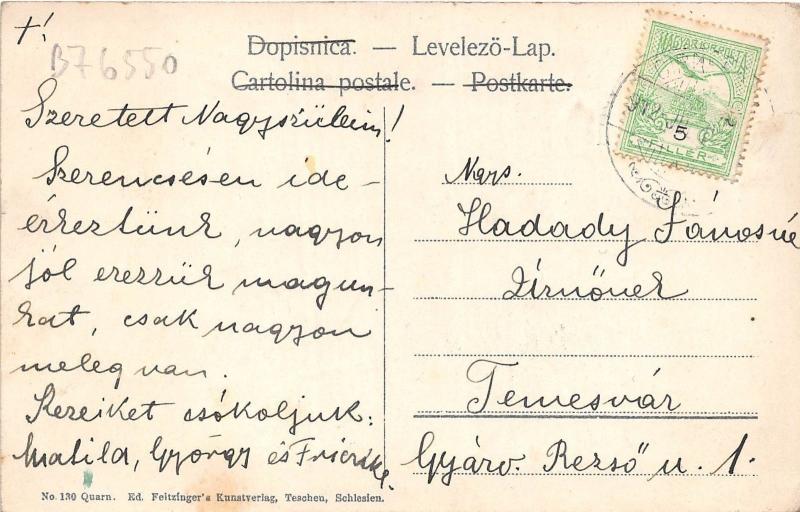 +!
B76550
Dopisnica. — Levelező-Lap.
Cartolina postale. — Postkarte.
Szeretett Nagyszüleim!
Szerencsésen ide-
érkeztünk, nagyon
jól erezzük magun-
kat, csak nagyon
meleg van.
Kezeiket csókoljuk:
Matild, György és Friczike.
MAGYAR KIR. POSTA
5
FILLER
Ngys.
Hadady Jánosné
Úrnőnek
Temesvár
Gyárv. Rezső u. 1.
No. 130 Quarn. Ed. Feitzinger's Kunstverlag, Teschen, Schlesien.